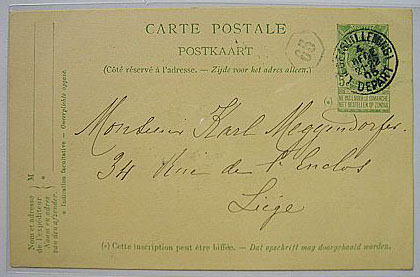 CARTE POSTALE
POSTKAART
(Côté réservé à l'adresse. — Zijde voor het adres alleen.)
65
LIÉGE (GUILLEMINS)
DÉPART
NE PAS LIVRER LE DIMANCHE
NIET BESTELLEN OP ZONDAG
(*)
Monsieur Karl Meggendorfer
34 Rue de l'Enclos
Liège
(*) Cette inscription peut être biffée. — Dat opschrift mag doorgehaald worden.
Nom et adresse
de l'expéditeur.
Naam en adres
van den afzender.
M
* Indication facultative. — Onverplichte opgave.